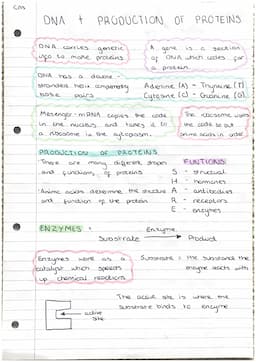 DNA + PRODUCTION OF PROTEINS
DNA carries genetic
info to make proteins
A gene is a section
of DNA which codes for
a protein.
DNA has a double -
stranded helix
base pairs
Adenine (A) - Thymine (T)
Cytosine (C) - Guanine (G)
Messenger-mRNA copies the code
in the nucleus and takes it to
a ribosome in the cytoplasm.
The ribosome uses
the code to put
amino acids in order
PRODUCTION OF PROTEINS
There are many different shapes
and functions of proteins
FUNTIONS:
S - structural
H - hormones
Amino acids determine the structure
and function of the protein
A - antibodies
R - receptors
E - enzymes
ENZYMES:
Enzyme
Substrate → Product
Enzymes work as a
catalyst which speeds
up chemical reactions
Substrate = the substance the
enzyme reacts with
active
site
The active site is where the
substrate binds to enzyme